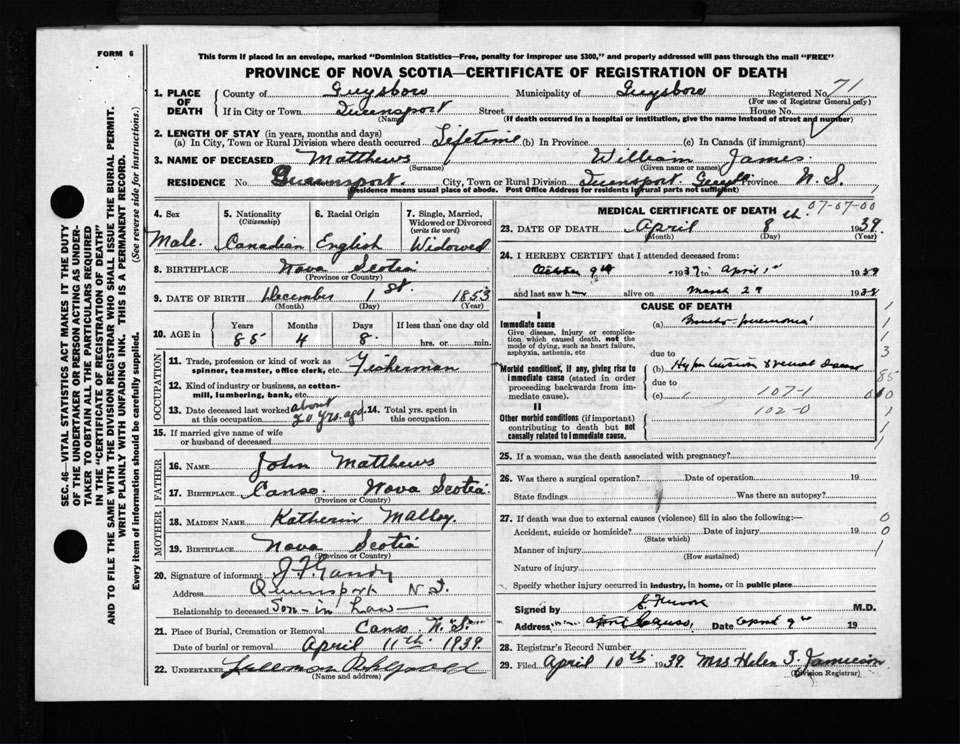 FORM 6
This form if placed in an envelope, marked "Dominion Statistics—Free, penalty for improper use $300," and properly addressed will pass through the mail "FREE"
PROVINCE OF NOVA SCOTIA—CERTIFICATE OF REGISTRATION OF DEATH
SEC. 46—VITAL STATISTICS ACT MAKES IT THE DUTY
OF THE UNDERTAKER OR PERSON ACTING AS UNDER-
TAKER TO OBTAIN ALL THE PARTICULARS REQUIRED
IN THE "CERTIFICATE OF REGISTRATION OF DEATH"
AND TO FILE THE SAME WITH THE DIVISION REGISTRAR WHO SHALL ISSUE THE BURIAL PERMIT.
WRITE PLAINLY WITH UNFADING INK. THIS IS A PERMANENT RECORD.
Every item of information should be carefully supplied. (See reverse side for instructions.)
1. PLACE OF DEATH
County of Guysboro Municipality of Guysboro Registered No. 71
(For use of Registrar General only)
If in City or Town Queensport Street House No.
(Name) (If death occurred in a hospital or institution, give the name instead of street and number)
2. LENGTH OF STAY (in years, months and days)
(a) In City, Town or Rural Division where death occurred Lifetime (b) In Province (c) In Canada (if immigrant)
3. NAME OF DECEASED Matthews William James
(Surname) (Given name or names)
RESIDENCE No. Queensport. City, Town or Rural Division Queensport. Province N. S.
(Residence means usual place of abode. Post Office Address for residents in rural parts not sufficient)
4. Sex Male.
5. Nationality (Citizenship) Canadian
6. Racial Origin English
7. Single, Married, Widowed or Divorced (write the word) Widowed
8. BIRTHPLACE Nova Scotia
(Province or Country)
9. DATE OF BIRTH December 1st. 1853
(Month) (Day) (Year)
10. AGE in Years 85 Months 4 Days 8. If less than one day old hrs. or min.
OCCUPATION
11. Trade, profession or kind of work as spinner, teamster, office clerk, etc. Fisherman
12. Kind of industry or business, as cotton-mill, lumbering, bank, etc.
13. Date deceased last worked at this occupation about 20 yrs. ago. 14. Total yrs. spent in this occupation
15. If married give name of wife or husband of deceased
FATHER
16. NAME John Matthews
17. BIRTHPLACE Canso. Nova Scotia.
(Province or Country)
MOTHER
18. MAIDEN NAME Katherin Malloy.
19. BIRTHPLACE Nova Scotia
(Province or Country)
20. Signature of informant J. F. Gandy
Address Queensport N. S.
Relationship to deceased Son-in Law
21. Place of Burial, Cremation or Removal Canso N. S.
Date of burial or removal April 11th. 1939.
22. UNDERTAKER
(Name and address)
MEDICAL CERTIFICATE OF DEATH 07-07-00
23. DATE OF DEATH April 8th. 1939.
(Month) (Day) (Year)
24. I HEREBY CERTIFY that I attended deceased from:
1937 to April 1st 1939
and last saw h alive on March 29 193
CAUSE OF DEATH
I
Immediate cause
Give disease, injury or complication which caused death, not the mode of dying, such as heart failure, asphyxia, asthenia, etc
(a) Broncho-pneumonia
due to
Morbid conditions, if any, giving rise to immediate cause (stated in order proceeding backwards from immediate cause).
(b) Hypertension & renal disease
due to
(c) 107-1
102-0
II
Other morbid conditions (if important) contributing to death but not causally related to immediate cause.
25. If a woman, was the death associated with pregnancy?
26. Was there a surgical operation? Date of operation 19
State findings Was there an autopsy?
27. If death was due to external causes (violence) fill in also the following:—
Accident, suicide or homicide? Date of injury 19
(State which)
Manner of injury
(How sustained)
Nature of injury
Specify whether injury occurred in industry, in home, or in public place
Signed by M.D.
Address Date April 9th 19
28. Registrar's Record Number
29. Filed April 10th 1939. Mrs Helen I. Jamieson
(Division Registrar)